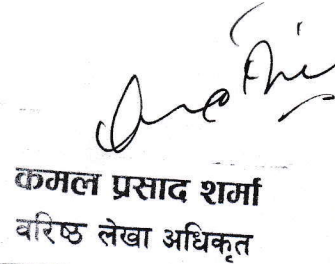 कमल प्रसाद शर्मा
वरिष्ठ लेखा अधिकृत